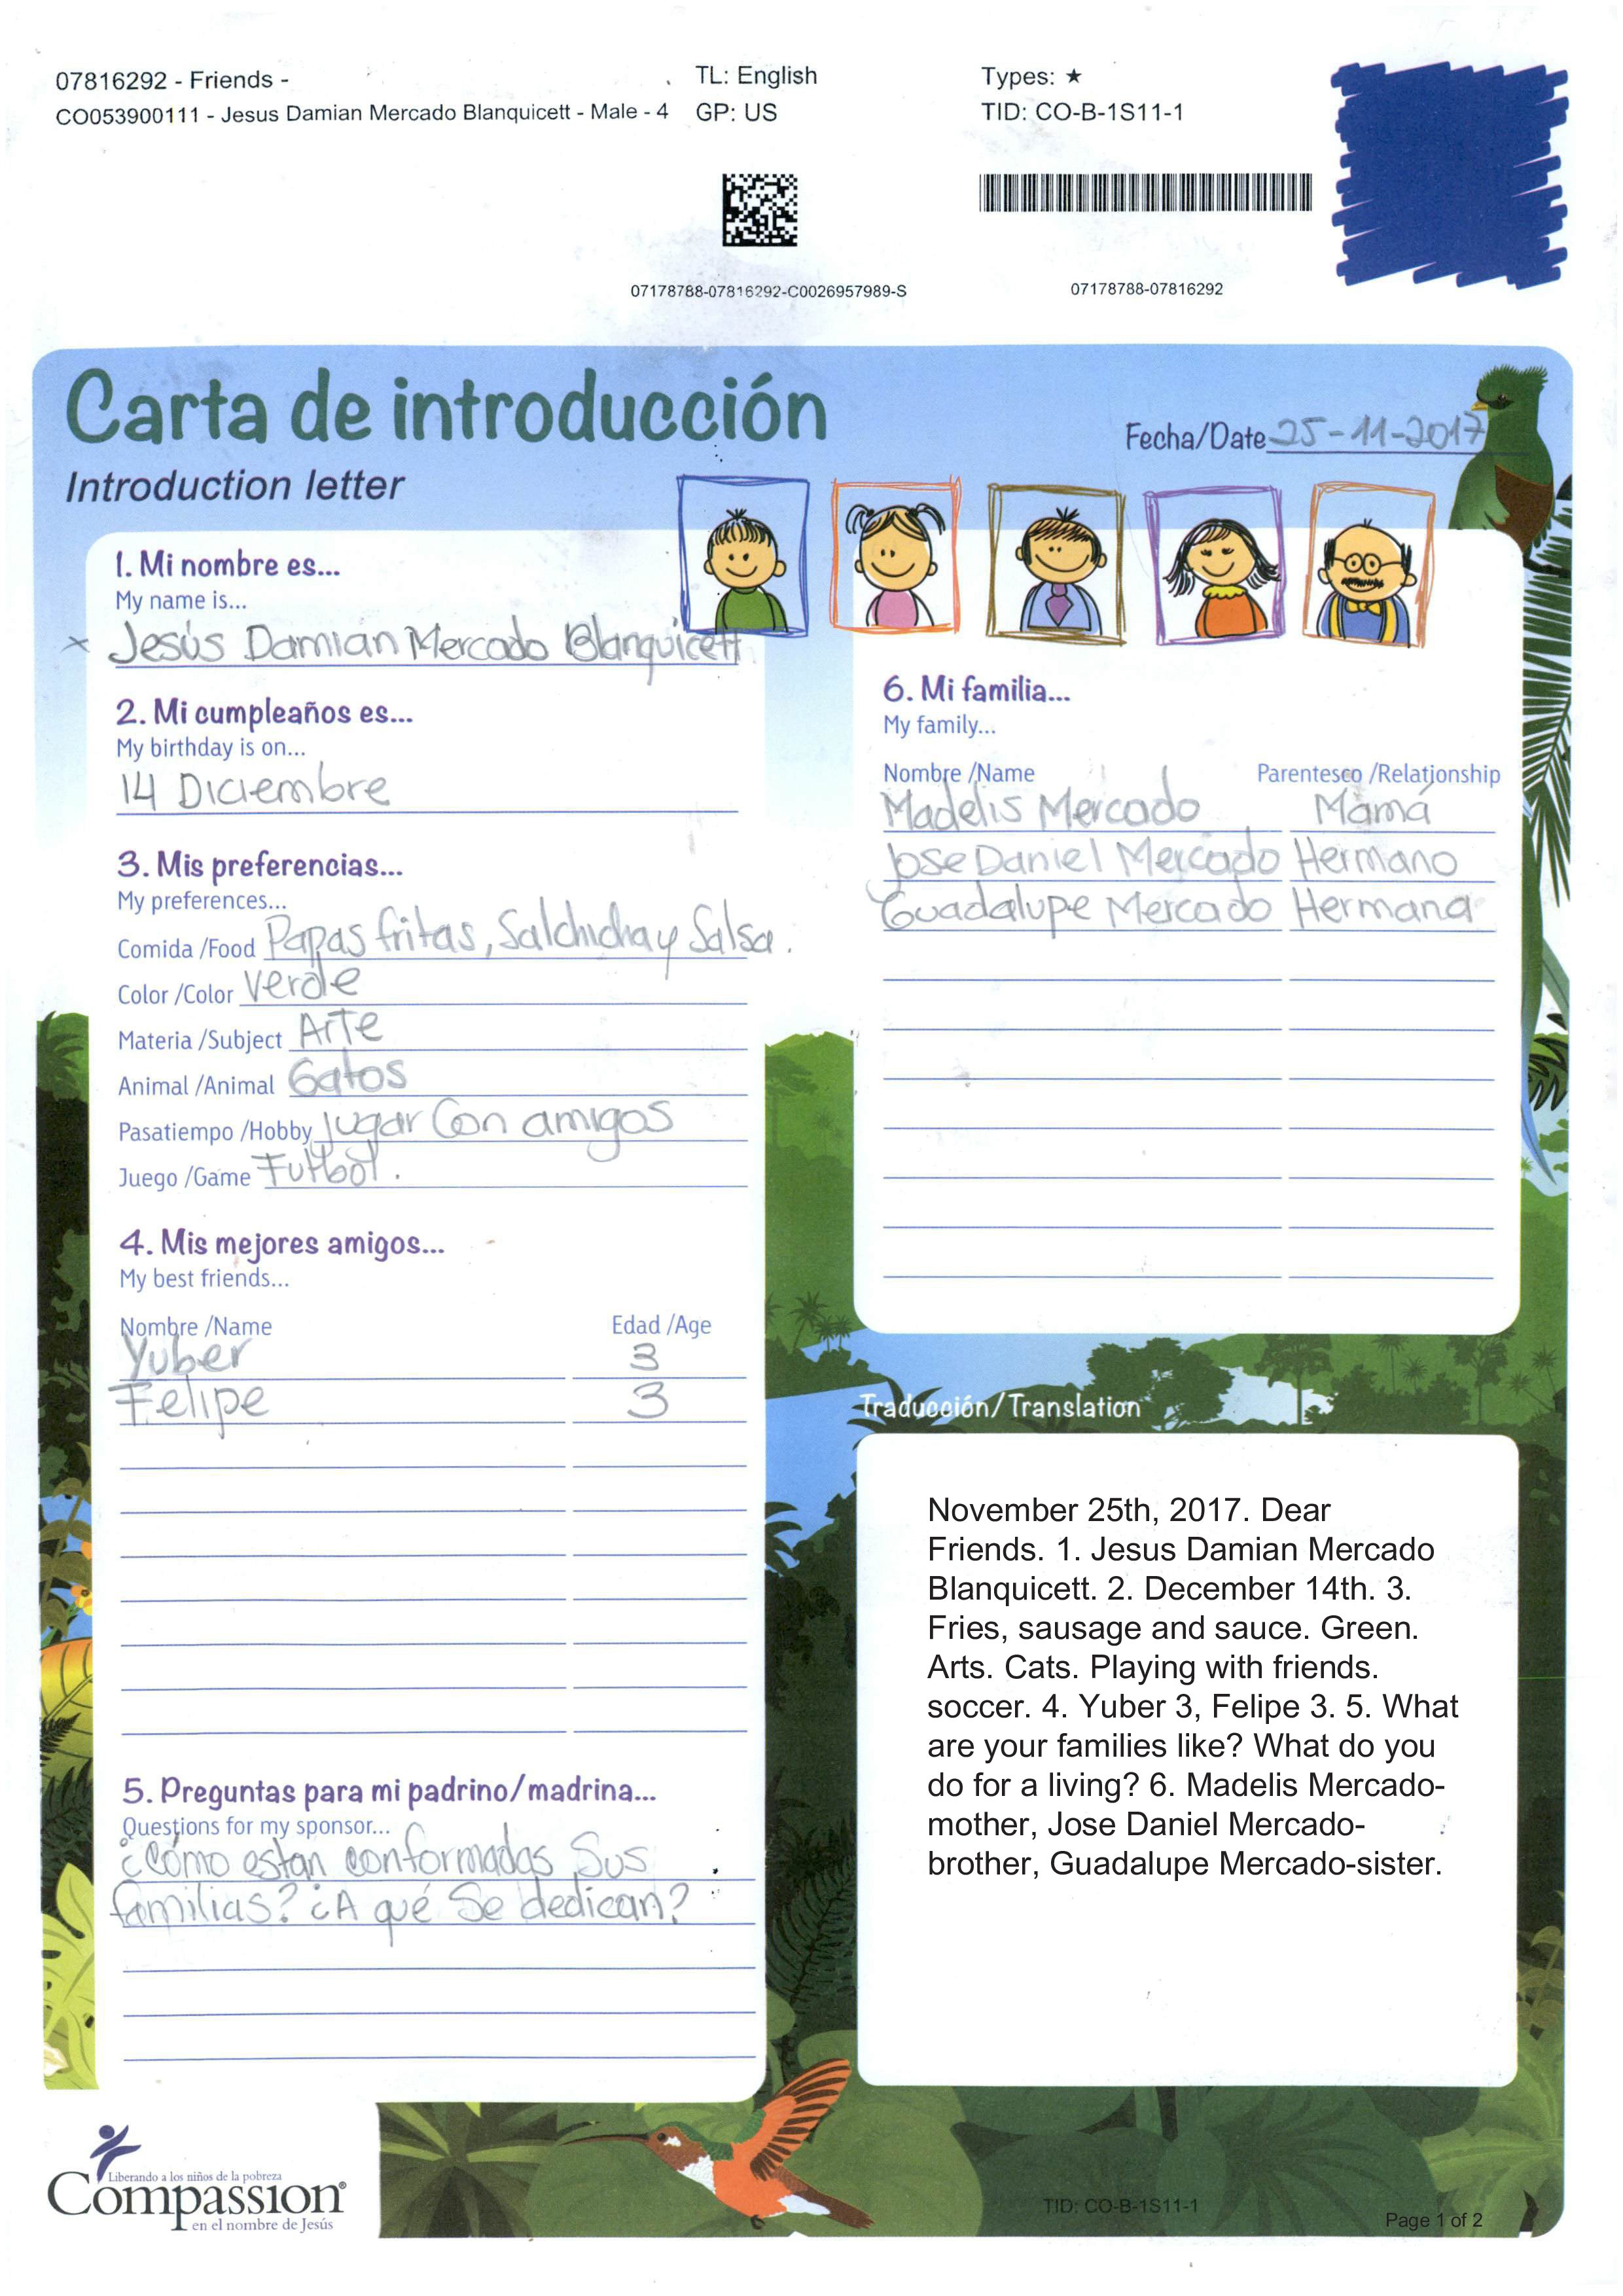 07816292 - Friends -
CO053900111 - Jesus Damian Mercado Blanquicett - Male - 4
TL: English
GP: US
Types: ★
TID: CO-B-1S11-1
07178788-07816292-C0026957989-S
07178788-07816292
Carta de introducción
Introduction letter
Fecha/Date 25-11-2017
1. Mi nombre es...
My name is...
x Jesús Damian Mercado Blanquicett
2. Mi cumpleaños es...
My birthday is on...
14 Diciembre
3. Mis preferencias...
My preferences...
Comida /Food Papas fritas, Salchicha y Salsa.
Color /Color Verde
Materia /Subject Arte
Animal /Animal Gatos
Pasatiempo /Hobby Jugar Con amigos
Juego /Game Futbol.
4. Mis mejores amigos...
My best friends...
Nombre /Name Edad /Age
Yuber 3
Felipe 3
5. Preguntas para mi padrino/madrina...
Questions for my sponsor...
¿Cómo estan conformadas Sus
familias? ¿A qué Se dedican?
6. Mi familia...
My family...
Nombre /Name Parentesco /Relationship
Madelis Mercado Mamá
Jose Daniel Mercado Hermano
Guadalupe Mercado Hermana
Traducción/Translation
November 25th, 2017. Dear
Friends. 1. Jesus Damian Mercado
Blanquicett. 2. December 14th. 3.
Fries, sausage and sauce. Green.
Arts. Cats. Playing with friends.
soccer. 4. Yuber 3, Felipe 3. 5. What
are your families like? What do you
do for a living? 6. Madelis Mercado-
mother, Jose Daniel Mercado-
brother, Guadalupe Mercado-sister.
Liberando a los niños de la pobreza
Compassion®
en el nombre de Jesús
TID: CO-B-1S11-1
Page 1 of 2